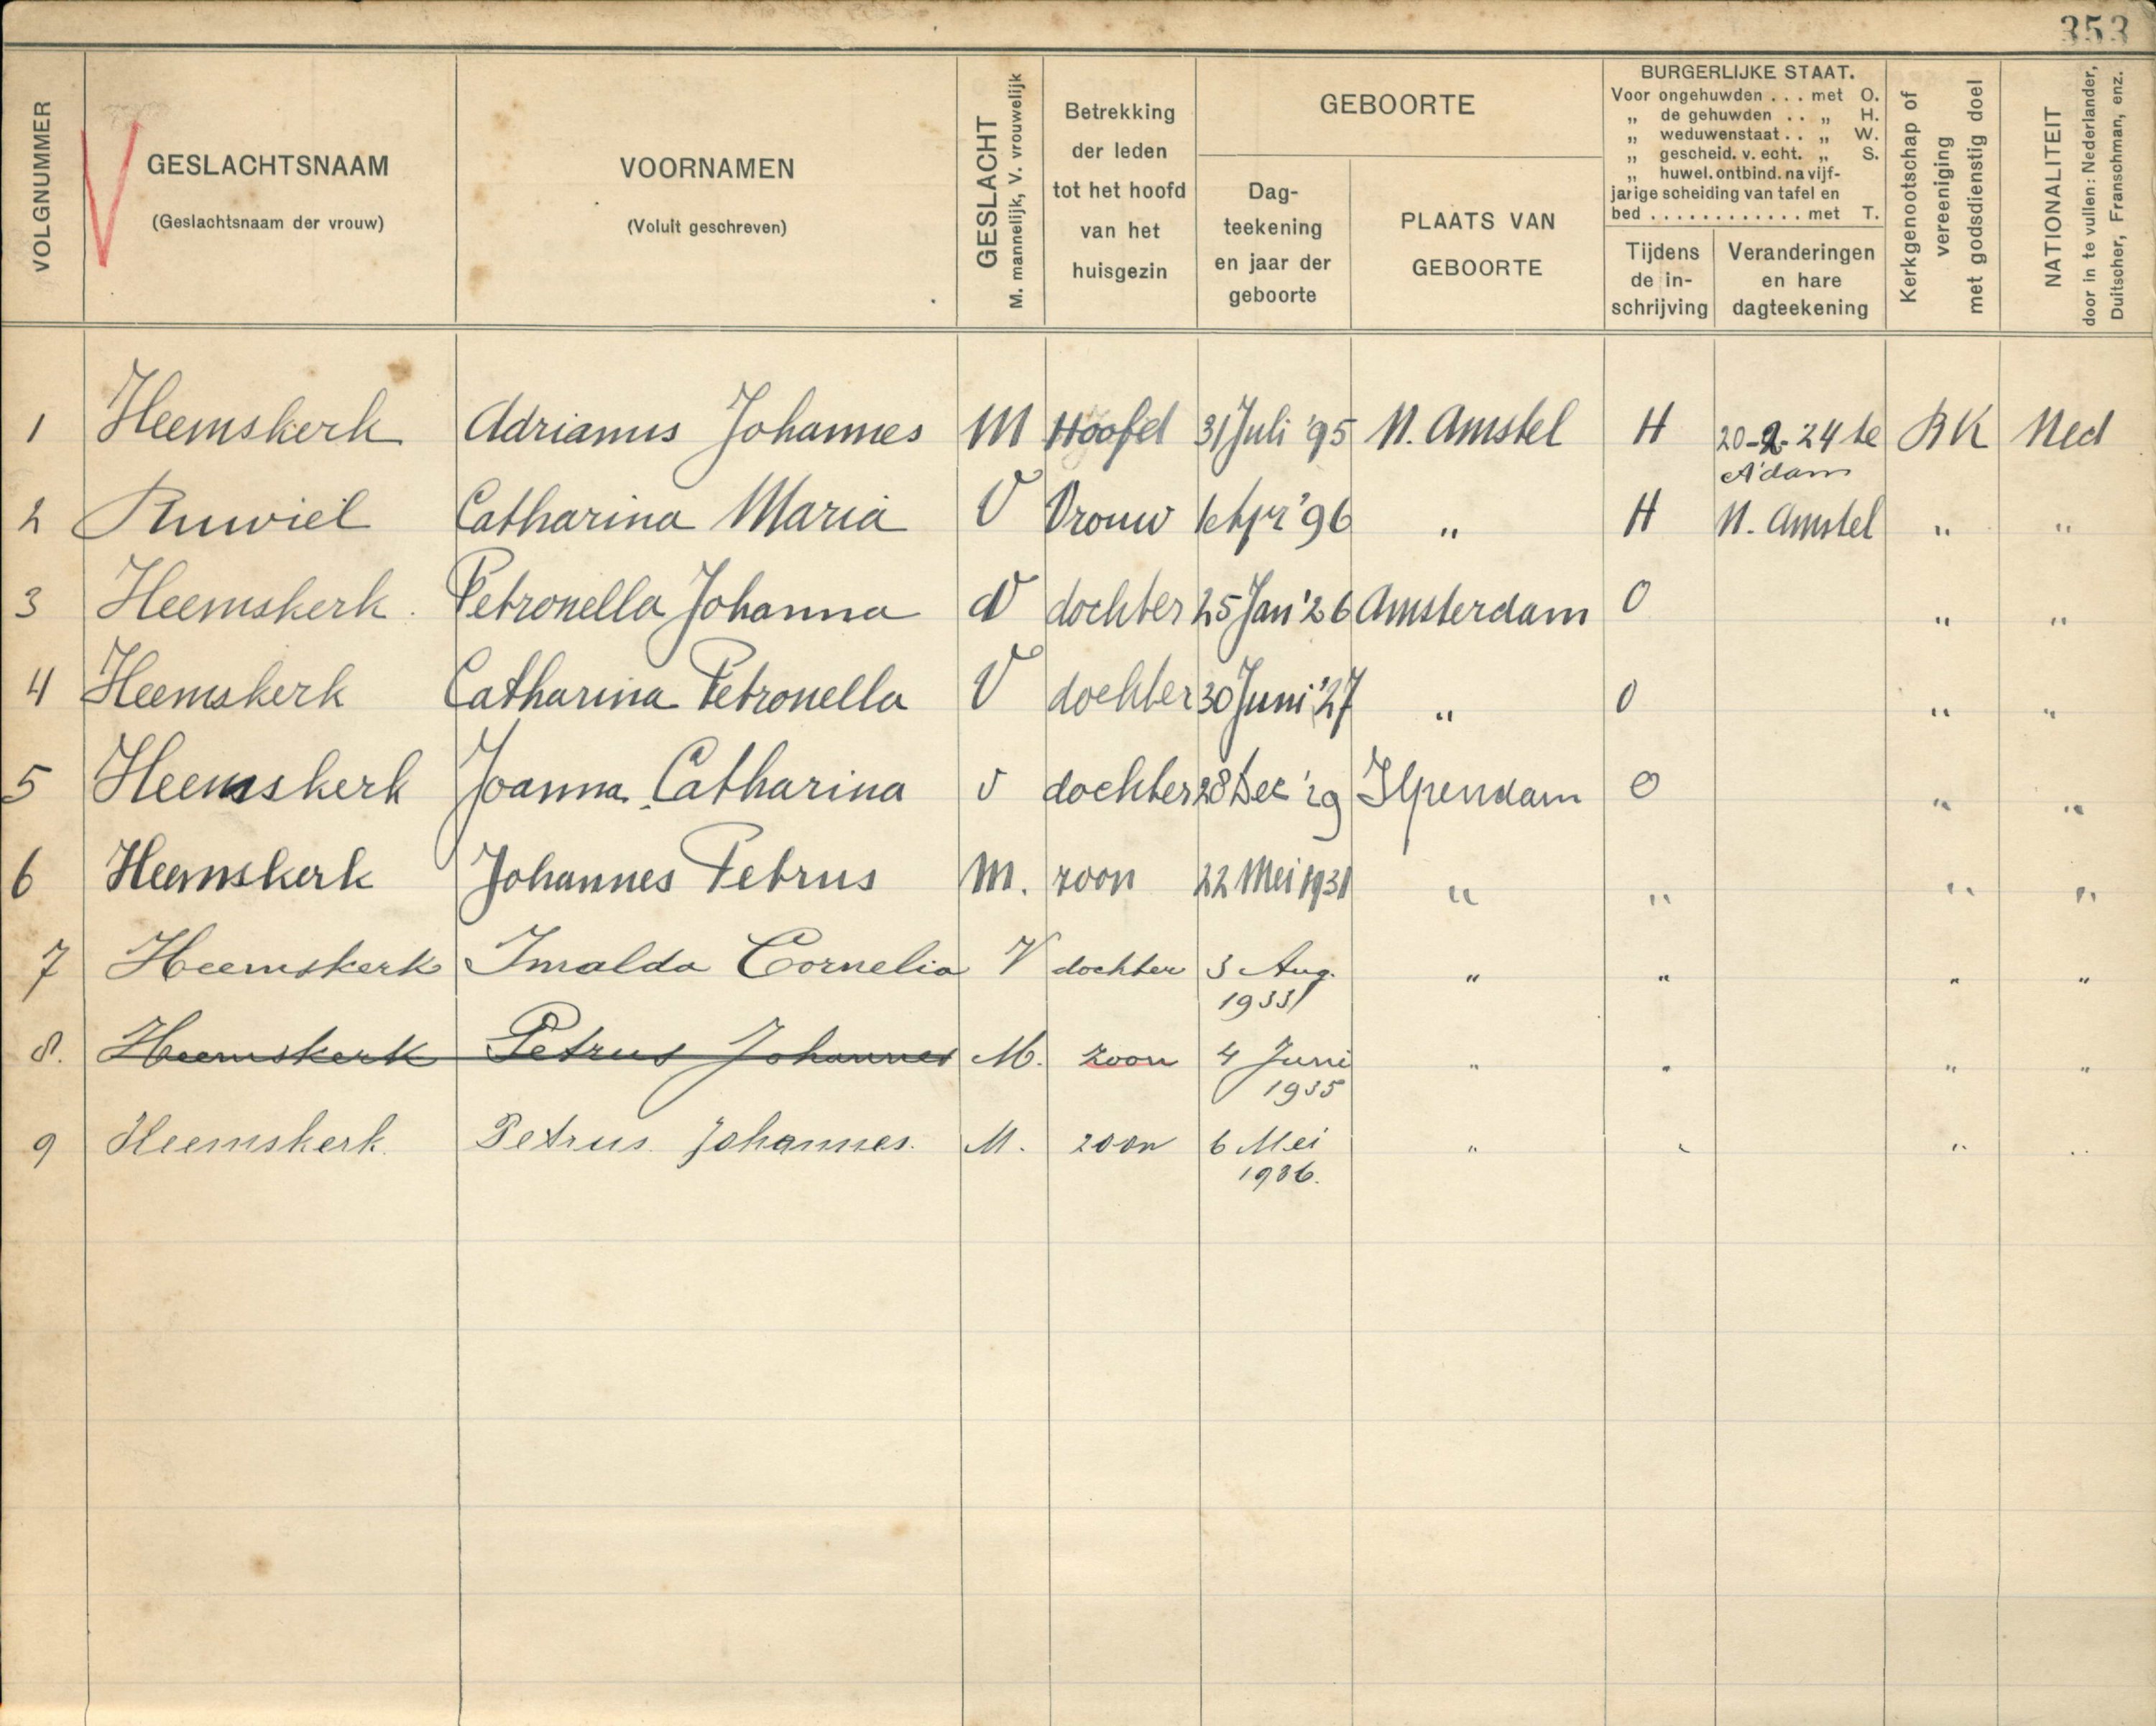 353
VOLGNUMMER
GESLACHTSNAAM
(Geslachtsnaam der vrouw)
VOORNAMEN
(Voluit geschreven)
GESLACHT
M. mannelijk, V. vrouwelijk
Betrekking
der leden
tot het hoofd
van het
huisgezin
GEBOORTE
Dag-
teekening
en jaar der
geboorte
PLAATS VAN
GEBOORTE
BURGERLIJKE STAAT.
Voor ongehuwden . . . met O.
„ de gehuwden . . „ H.
„ weduwenstaat . . „ W.
„ gescheid. v. echt. „ S.
„ huwel. ontbind. na vijf-
jarige scheiding van tafel en
bed . . . . . . . . . . . . met T.
Tijdens
de in-
schrijving
Veranderingen
en hare
dagteekening
Kerkgenootschap of
vereeniging
met godsdienstig doel
NATIONALITEIT
door in te vullen: Nederlander,
Duitscher, Franschman, enz.
1 Heemskerk Adrianus Johannes M Hoofd 31 Juli '95 N. Amstel H 20-2-'24 te RK Ned
A'dam
2 Ruwiel Catharina Maria V Vrouw 1 Apr '96 „ H N. Amstel „ „
3 Heemskerk. Petronella Johanna V dochter 25 Jan '26 Amsterdam O „ „
4 Heemskerk Catharina Petronella V dochter 30 Juni '27 „ O „ „
5 Heemskerk Joanna Catharina v dochter 28 Dec '29 Ilpendam O „ „
6 Heemskerk Johannes Petrus M. zoon 22 Mei 1931 „ „ „ „
7 Heemskerk Imalda Cornelia V dochter 3 Aug. „ „ „ „
1933
8. Heemskerk Petrus Johannes M. zoon 4 Juni „ „ „ „
1935
9 Heemskerk. Petrus Johannes. M. zoon 6 Mei „ „ „ „
1936.